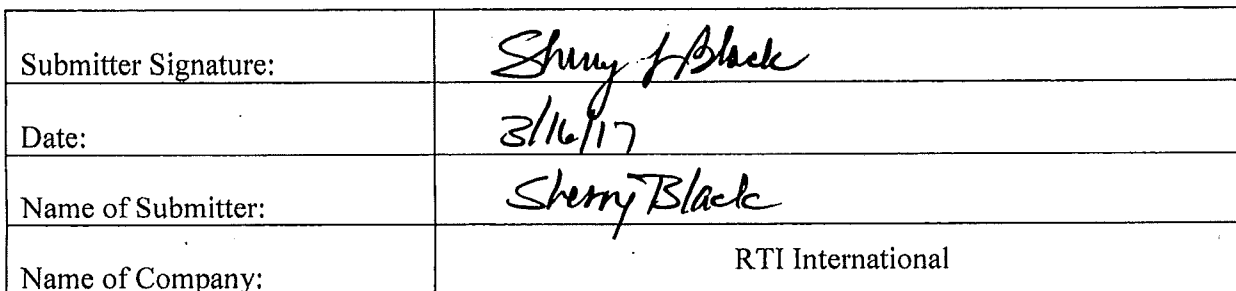 Submitter Signature: Sherry J Black
Date: 3/16/17
Name of Submitter: Sherry Black
Name of Company: RTI International